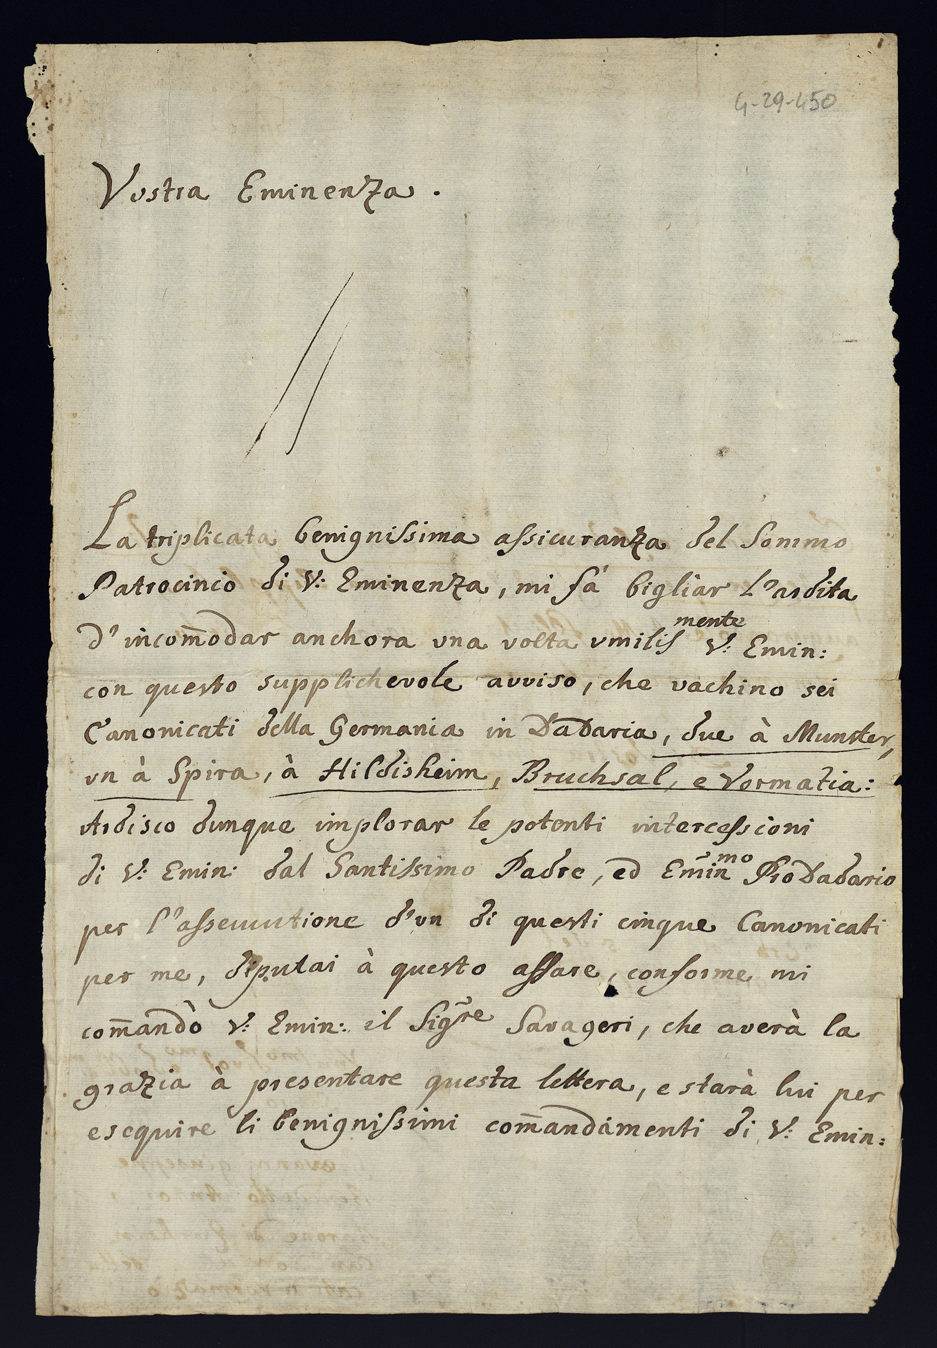 4-29-450
Vostra Eminenza.
La triplicata benignissima assicuranza del Sommo
Patrocinio di V: Eminenza, mi fá bigliar l'ardita
d'incom̄odar anchora una volta vmilissmente V: Emin:
con questo supplichevole avviso, che vachino sei
Canonicati della Germania in Dadaria, due à Munster,
vn à Spira, à Hildisheim, Bruchsal, e Vormatia:
Ardisco dunque implorar le potenti intercessioni
di V: Emin: dal Santissimo Padre, ed Emin̄mo ProDadario
per l'assecutione d'vn di questi cinque Canonicati
per me, diputai à questo affare, conforme mi
com̄andò V: Emin: il Sig̃re Savageri, che averà la
grazia à presentare questa lettera, e starà lui per
esequire li benignissimi com̄andamenti di V: Emin: